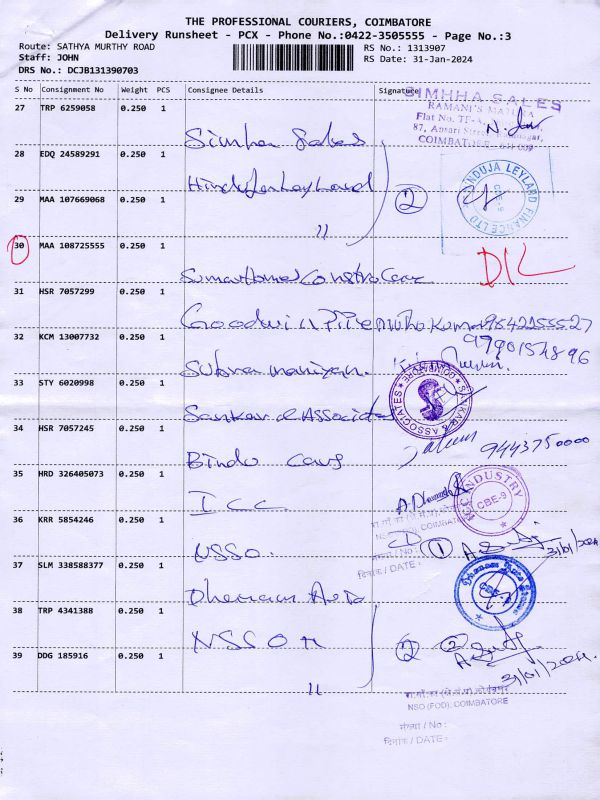 THE PROFESSIONAL COURIERS, COIMBATORE
Delivery Runsheet - PCX - Phone No.:0422-3505555 - Page No.:3
Route: SATHYA MURTHY ROAD
RS No.: 1313907
Staff: JOHN
RS Date: 31-Jan-2024
DRS No.: DCJB131390703
S No Consignment No Weight PCS Consignee Details Signature
SIMHHA SALES
27 TRP 6259058 0.250 1
RAMANI'S
Flat No.
87, Ansari Street, Nagar,
COIMBATORE - 641 009
Simha Sales
28 EDQ 24589291 0.250 1
HINDUJA LEYLAND FINANCE LTD
CBE-9
Hinduja Leyland
29 MAA 107669068 0.250 1
2
〃
30 MAA 108725555 0.250 1
D/L
31 HSR 7057299 0.250 1
Goodwill
32 KCM 13007732 0.250 1
Subramaniyan.
33 STY 6020998 0.250 1
SANKAR & ASSOCIATES * COIMBATORE *
S
Sankar & Associates
34 HSR 7057245 0.250 1
9443750000
Bindu Cars
35 HRD 326405073 0.250 1
INDUSTRY
CBE-9
ICC
36 KRR 5854246 0.250 1
NSSO (FOD), COIMBATORE
संख्या / No :
दिनांक / DATE :
1
31/01/2024
NSSO.
37 SLM 338588377 0.250 1
38 TRP 4341388 0.250 1
NSSO
2
2
39 DDG 185916 0.250 1
31/01/2024
〃
NSO (FOD), COIMBATORE
संख्या / No :
दिनांक / DATE :